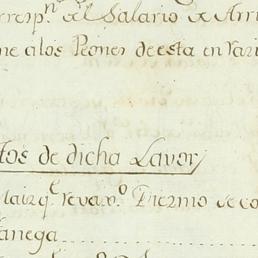 resp.n del Salario de Arri
ne a los Peones de esta en vari
tos de dicha Lavor
Maiz q.e reva n.o Diezmo se co
fanega